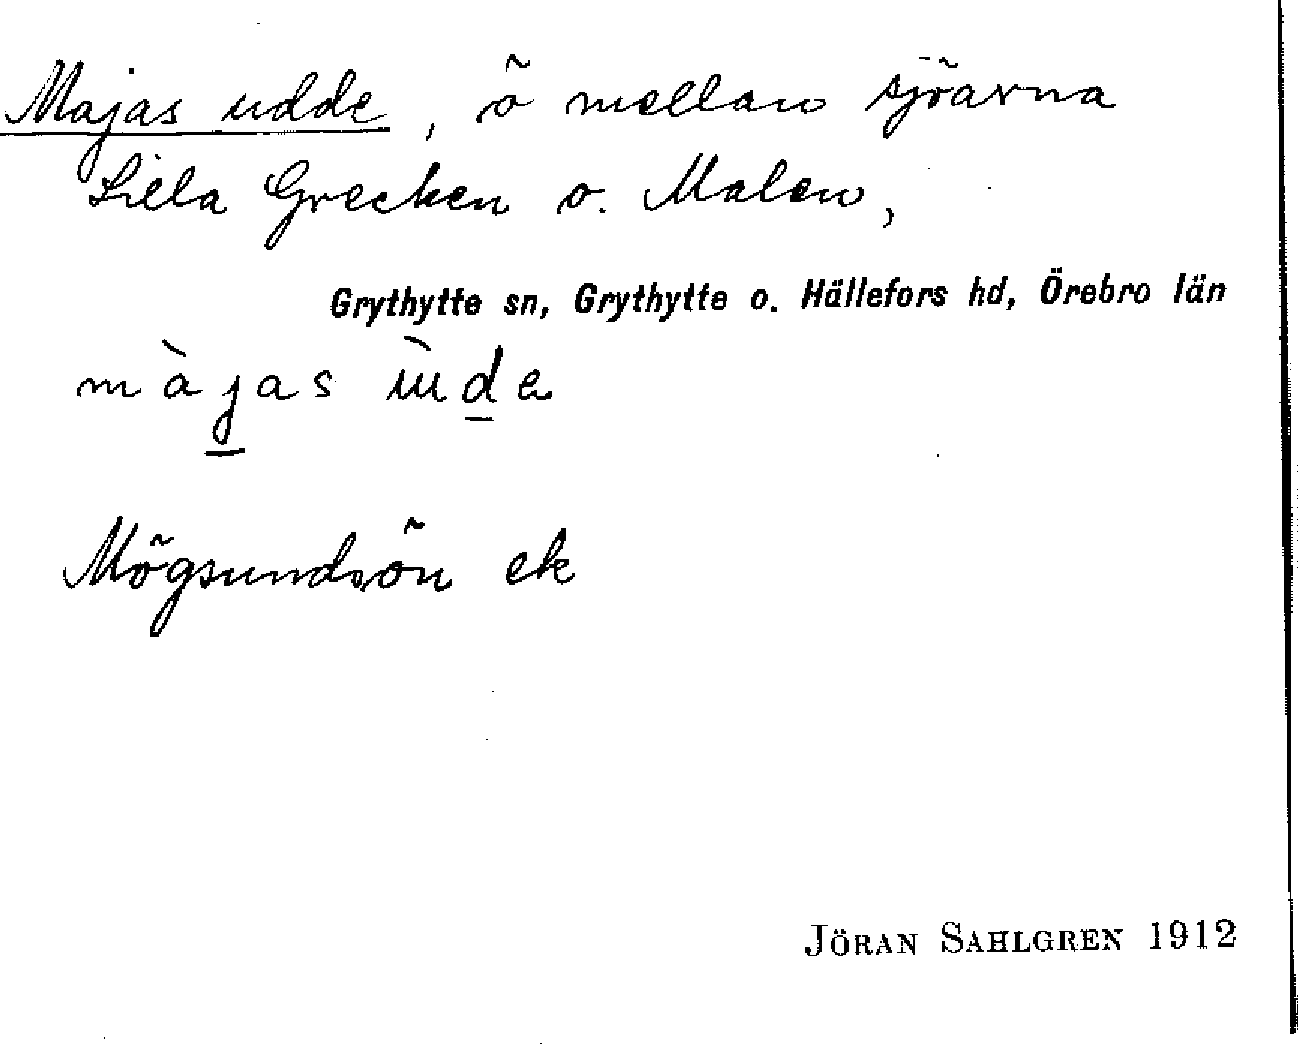 Majas udde, ö mellan sjöarna
Lilla Grecken o. Malen,
Grythytte sn, Grythytte o. Hällefors hd, Örebro län
màjas ùde
Mögsundsön ek
JÖRAN SAHLGREN 1912